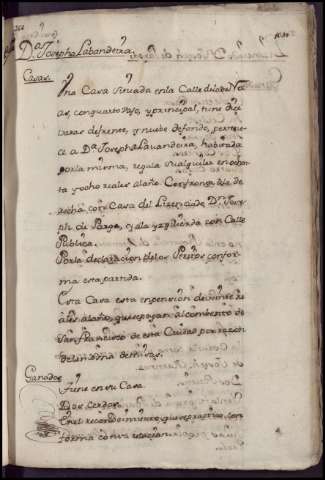 D.ª Josepha Labandeira
Casas
Una Casa situada en la Calle de las No
as, con quarto vajo, y principal, tiene diez
baras de frente, y nuebe de fondo, pertene
ce a D.ª Josepha Lavandeira, habitada
por la misma, regula su alquiler en ochen
ta y ocho reales al año. Confronta a la de
recha con Casa del Lizenciado D.n Jose
ph de Parga, e a la izquierda con Calle
Publica.
Por la declaracion de los Peritos confor
ma esta partida.
Esta Casa esta en pension de
reales al año, que se pagan al combento de
San Francisco de esta Ciudad por razon
de limosna de misas.
Ganados
Tiene en su Casa
Dos Cerdos.
En el recondzimiento que se practico, con
forma con su relacion